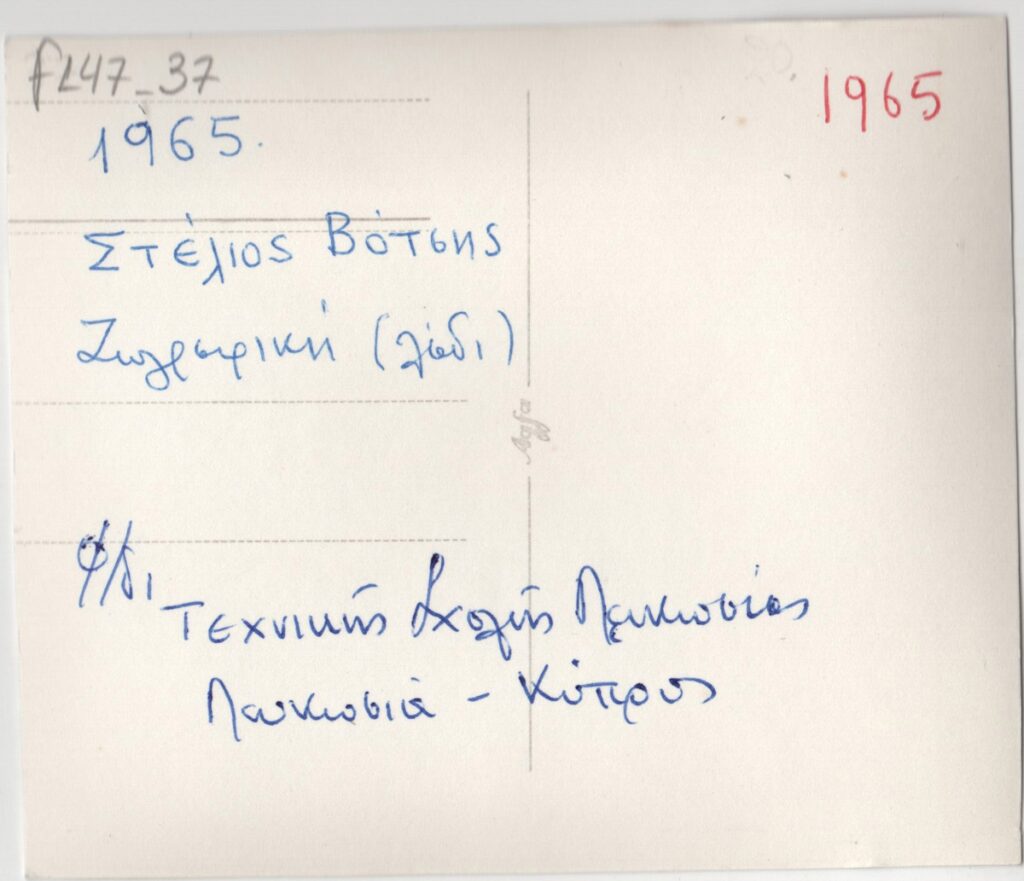 FL47_37
1965
1965.
Στέλιος Βότσης
Ζωγραφική (λάδι)
Agfa
Τεχνικής Σχολής Λευκωσίας
Λευκωσία - Κύπρος